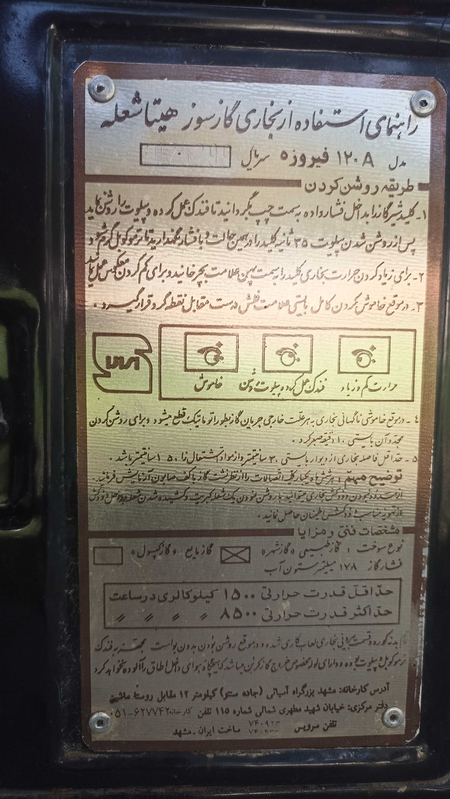 راهنمای استفاده از بخاری گازسوز هیتاشعله
مدل ۱۲۰A فیروزه سریال
طریقه روشن کردن
۱- کلید شیر گاز را به داخل فشار داده به سمت چپ بگردانید تا فندک عمل کرده و پیلوت را روشن نماید
پس از روشن شدن پیلوت ۳۵ ثانیه کلید را در همین حالت با فشار نگهدارید تا ترموکوپل گرم شود
۲- برای زیاد کردن حرارت بخاری کلید را به سمت چپ علامت بچرخانید و برای کم کردن معکوس عمل نمائید
۳- در موقع خاموش کردن کامل بایستی علامت فلش درست مقابل نقطه گرد قرار گیرد.
حرارت کم و زیاد
فندک عمل کرده پیلوت روشن
خاموش
۴- در موقع خاموشی ناگهانی بخاری به هر علت خارجی جریان گاز بطور اتوماتیک قطع میشود و برای روشن کردن
مجدد آن بایستی ۱۰ دقیقه صبر کرد.
۵- حداقل فاصله بخاری از دیوار بایستی ۳۰ سانتیمتر و از مواد اشتعال زا ۱۵۰ سانتیمتر باشد.
توضیح مهم: هر شش ماه یکبار کلیه اتصالات را از نظر نشت گاز با کف صابون آزمایش فرمائید.
اطمینان حاصل نمائید.
مشخصات فنی و مزایا
نوع سوخت: گاز طبیعی «گاز شهر» گاز مایع «گاز کپسول»
فشار گاز ۱۷۸ میلیمتر ستون آب
حداقل قدرت حرارتی ۱۵۰۰ کیلوکالری در ساعت
حداکثر قدرت حرارتی ۸۵۰۰ " " "
آدرس کارخانه: مشهد بزرگراه آسیائی (جاده سنتو) کیلومتر ۱۲ مقابل روستا
دفتر مرکزی: خیابان شهید مطهری شمالی شماره ۱۱۵ تلفن کارخانه ۶۲۷۷۴۲-۰۵۱
تلفن سرویس
ساخت ایران - مشهد